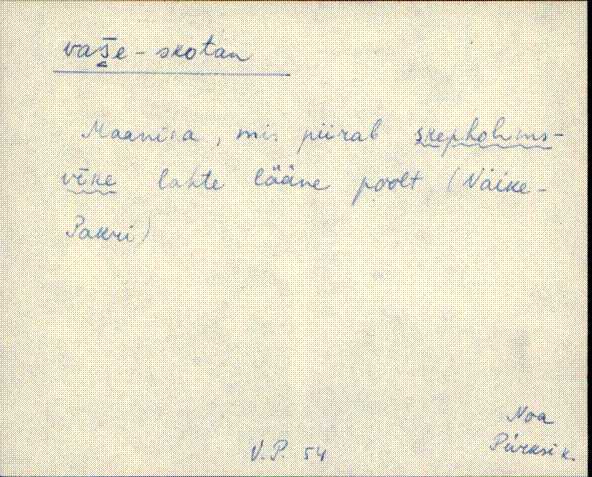 vaše-skotan
Maanina, mis piirab skepholms-
vīke lahte lääne poolt (Väike-
Pakri)
Noa
V.P. 54
Pürksi k.